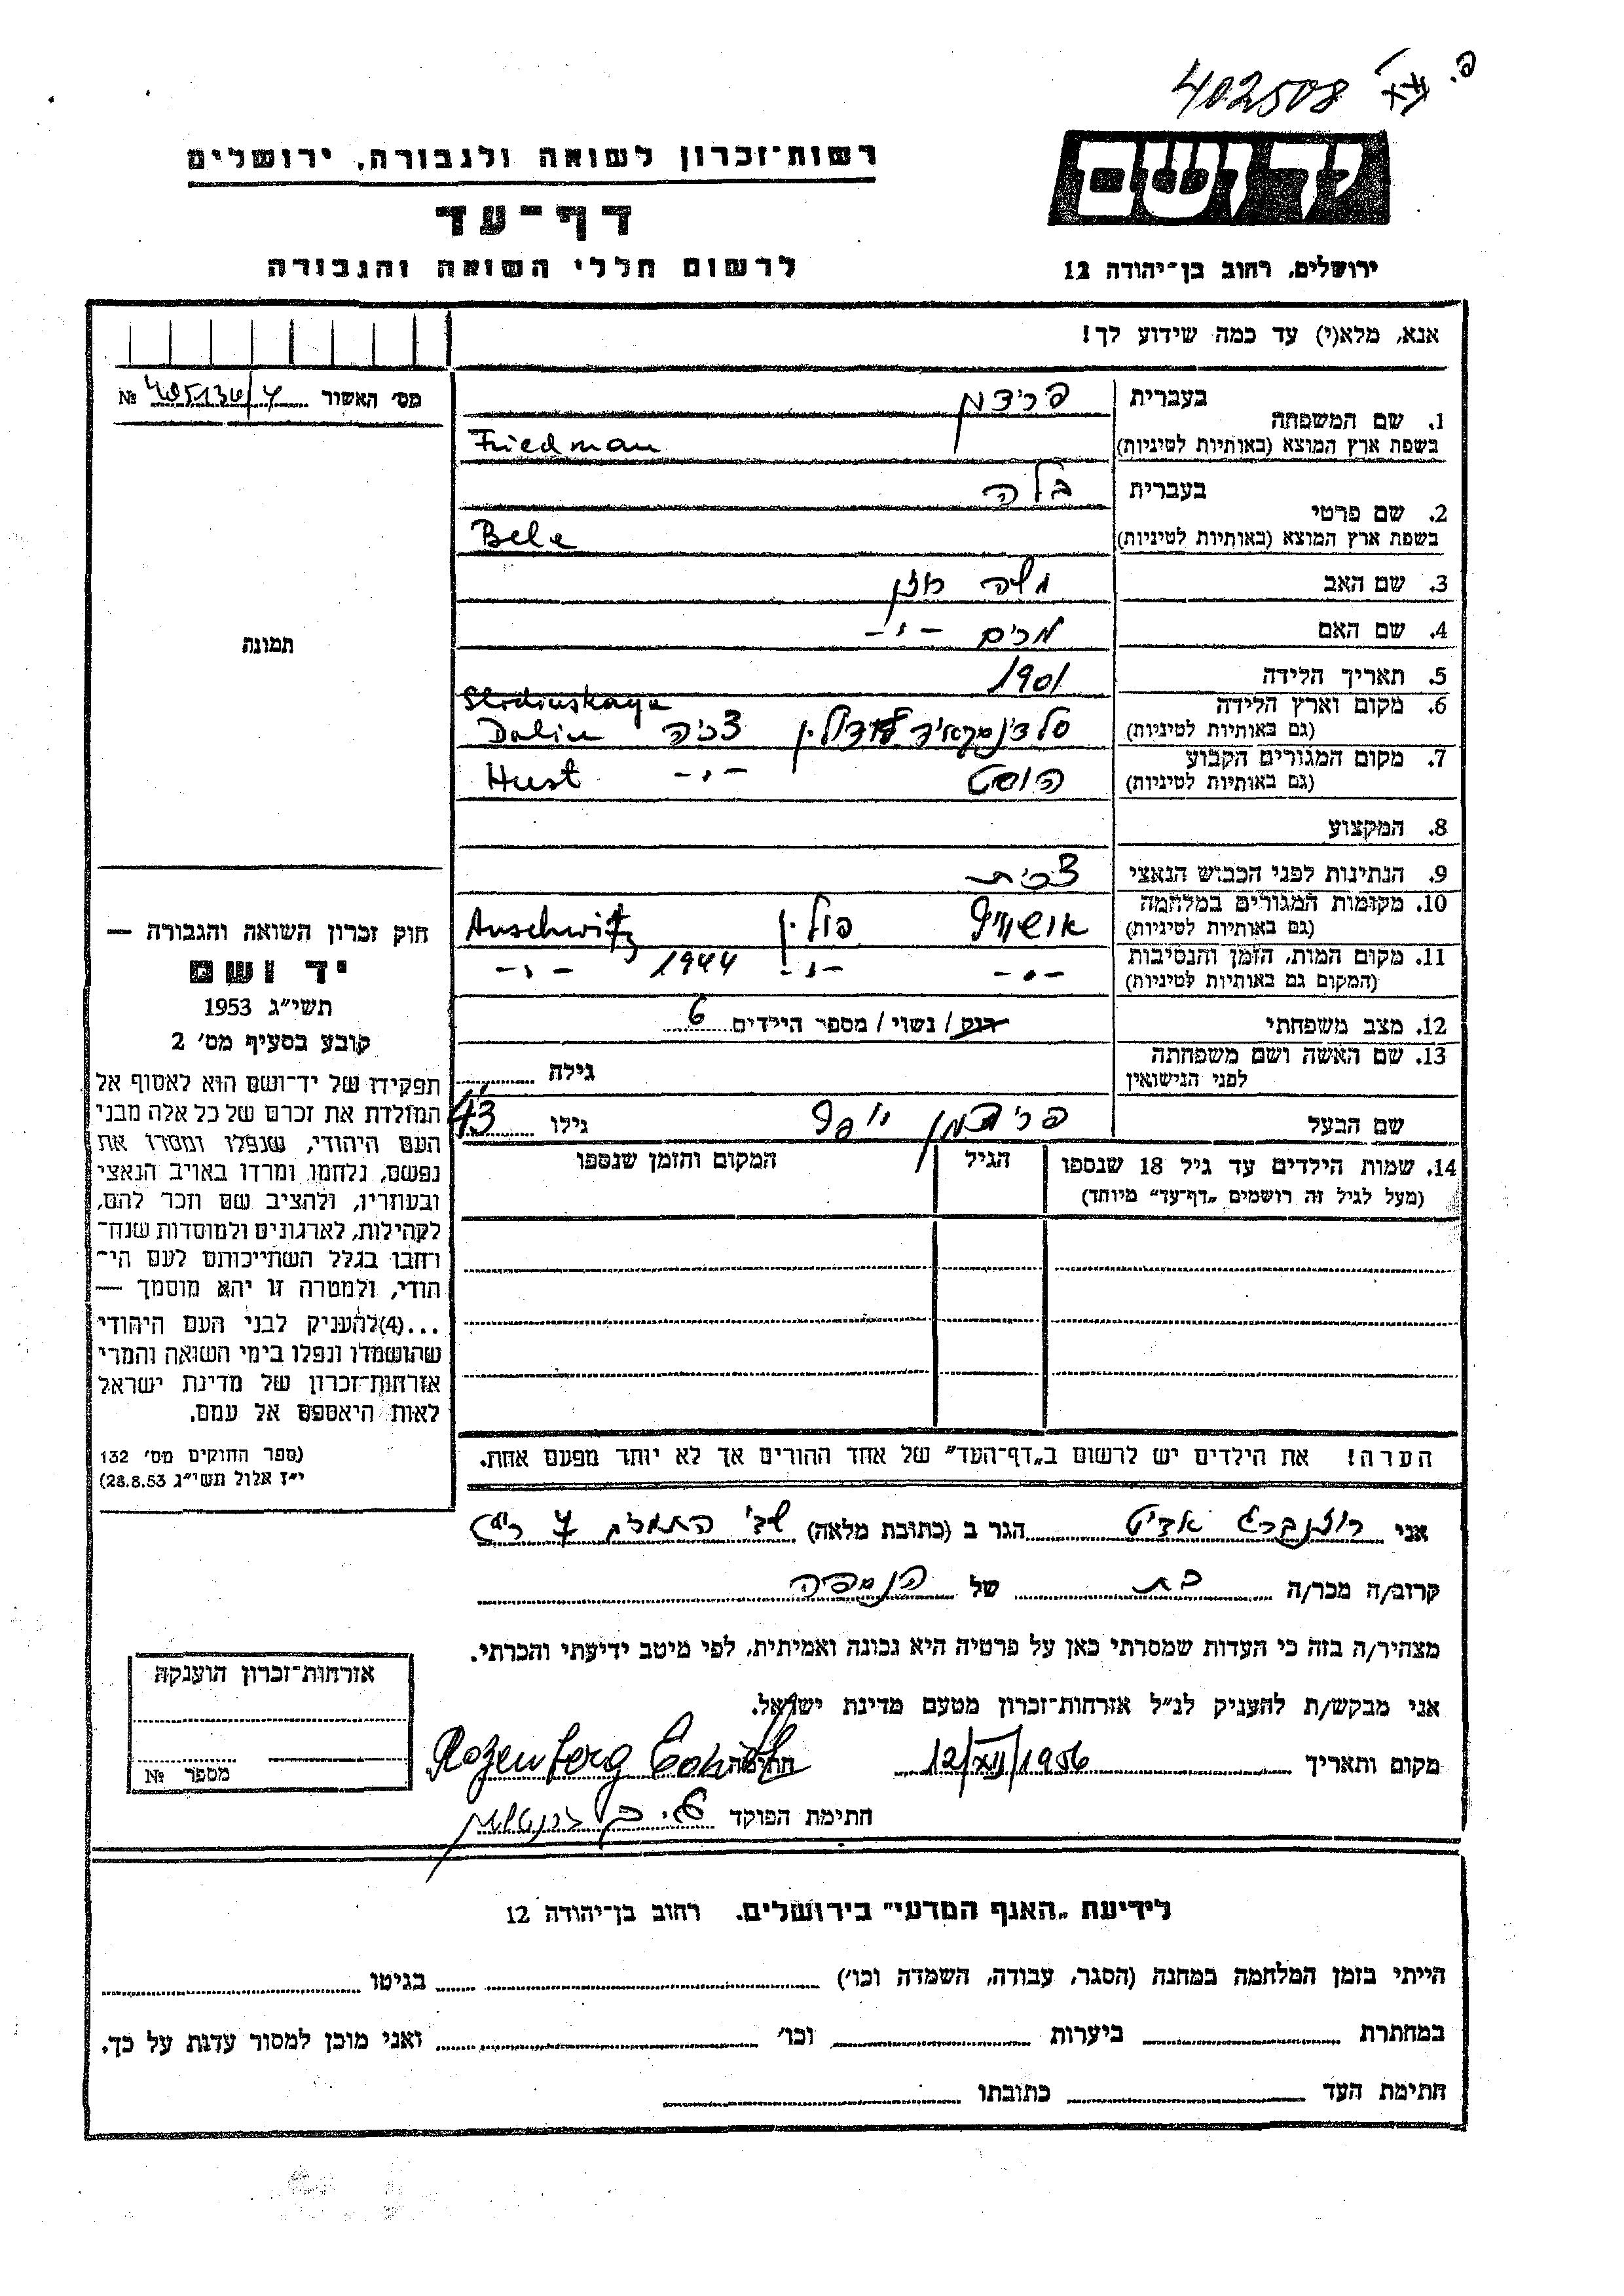 402508
רשות־זכרון לשואה ולגבורה, ירושלים
יד ושם
דף־עד
לרשום חללי השואה והגבורה
ירושלים, רחוב בן־יהודה 12
אנא, מלא(י) עד כמה שידוע לך!
מס׳ האשור №
1. שם המשפחה בעברית פרידמן
בשפת ארץ המוצא (באותיות לטיניות) Friedman
2. שם פרטי בעברית בלה
בשפת ארץ המוצא (באותיות לטיניות) Bele
3. שם האב משה
4. שם האם מרים –״–
5. תאריך הלידה 1901
6. מקום וארץ הלידה
(גם באותיות לטיניות) צ׳כיה Dolin
7. מקום המגורים הקבוע הוסט –״– Hust
(גם באותיות לטיניות)
8. המקצוע
9. הנתינות לפני הכבוש הנאצי צ׳כית
10. מקומות המגורים במלחמה אושויץ פולין Auschwitz
(גם באותיות לטיניות)
11. מקום המות, הזמן והנסיבות –״– –״– 1944 –״–
(המקום גם באותיות לטיניות)
12. מצב משפחתי רוק / נשוי / מספר הילדים 6
13. שם האשה ושם משפחתה
לפני הנישואין גילה
שם הבעל פרידמן יוסף גילו 43
14. שמות הילדים עד גיל 18 שנספו הגיל המקום והזמן שנספו
(מעל לגיל זה רושמים „דף־עד״ מיוחד)
תמונה
חוק זכרון השואה והגבורה —
יד ושם
תשי״ג 1953
קובע בסעיף מס׳ 2
תפקידו של יד־ושם הוא לאסוף אל
המולדת את זכרם של כל אלה מבני
העם היהודי, שנפלו ומסרו את
נפשם, נלחמו ומרדו באויב הנאצי
ובעוזריו, ולהציב שם וזכר להם,
לקהילות, לארגונים ולמוסדות שנח־
רחבו בגלל השתייכותם לעם הי־
הודי, ולמטרה זו יהא מוסמך —
...(4)להעניק לבני העם היהודי
שהושמדו ונפלו בימי השואה והמרי
אזרחות־זכרון של מדינת ישראל
לאות היאספם אל עמם.
(ספר החוקים מס׳ 132
י״ז אלול תשי״ג 28.8.53)
הערה! את הילדים יש לרשום ב„דף־העד״ של אחד ההורים אך לא יותר מפעם אחת.
אני רוזנברג אדיט הגר ב (כתובת מלאה)
קרוב/ה מכר/ה בת של הנספה
מצהיר/ה בזה כי העדות שמסרתי כאן על פרטיה היא נכונה ואמיתית, לפי מיטב ידיעתי והכרתי.
אני מבקש/ת להעניק לנ״ל אזרחות־זכרון מטעם מדינת ישראל.
מקום ותאריך 12/XII/1956 חתימה Rozenberg Edith
חתימת הפוקד
אזרחות־זכרון הוענקה
מספר №
לידיעת „האגף המדעי״ בירושלים. רחוב בן־יהודה 12
הייתי בזמן המלחמה במחנה (הסגר, עבודה, השמדה וכו׳) בגיטו
במחתרת ביערות וכו׳ ואני מוכן למסור עדות על כך.
חתימת העד כתובתו